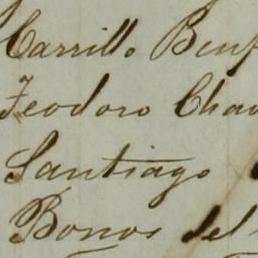 Carrillo Benf
Teodoro Chav
Santiago
Bonos del